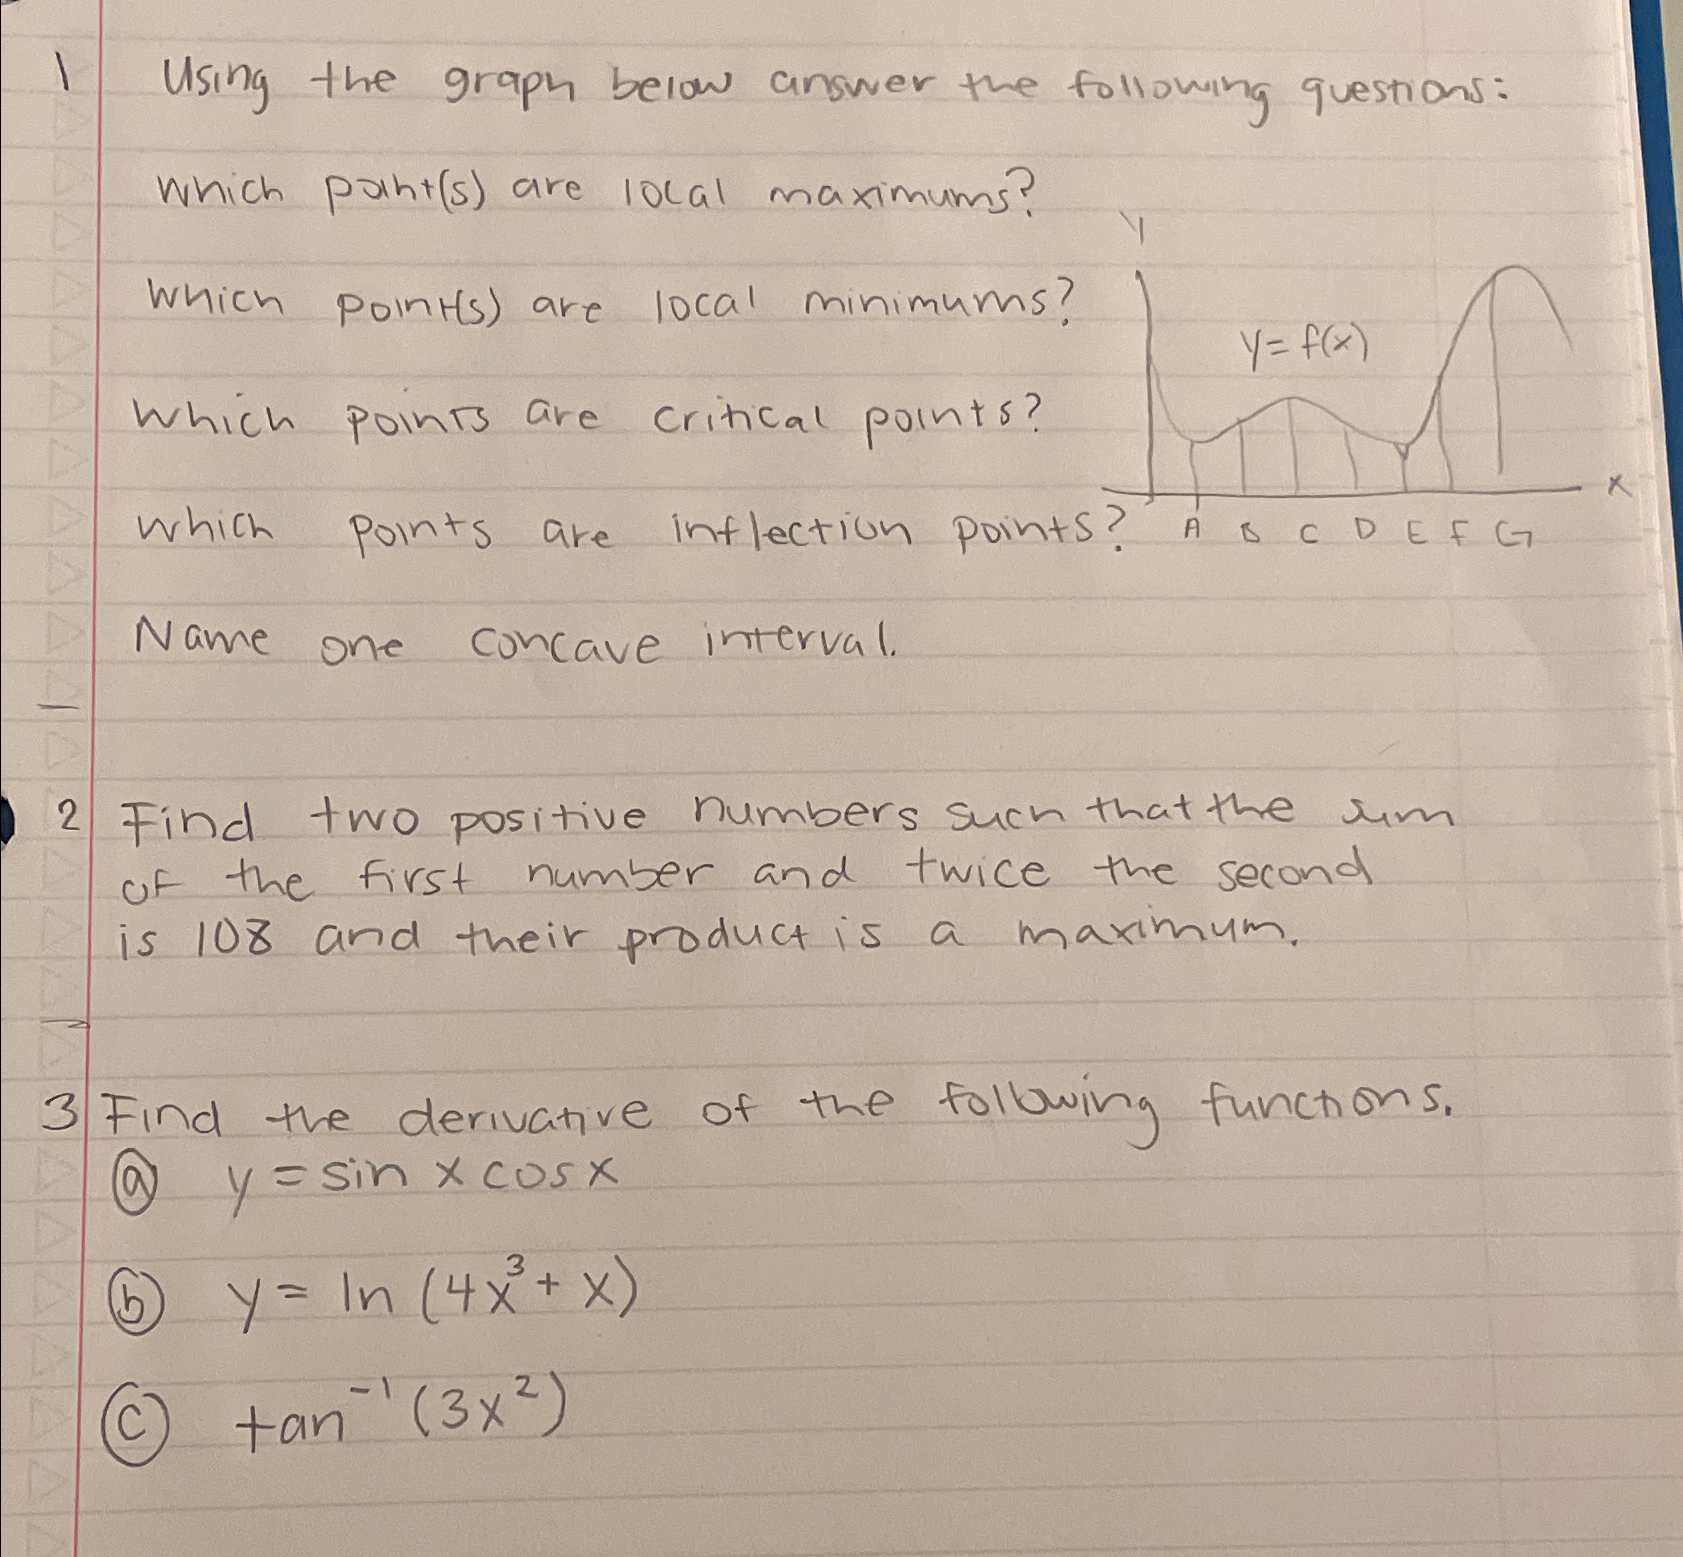 1 Using the graph below answer the following questions:
Which point(s) are local maximums?
Which point(s) are local minimums?
Which points are critical points?
Which points are inflection points?
Name one concave interval.
Y
y=f(x)
x
A B C D E F G
2 Find two positive numbers such that the sum
of the first number and twice the second
is 108 and their product is a maximum.
3 Find the derivative of the following functions.
ⓐ y = sin x cos x
ⓑ y = ln (4x³ + x)
ⓒ tan⁻¹ (3x²)